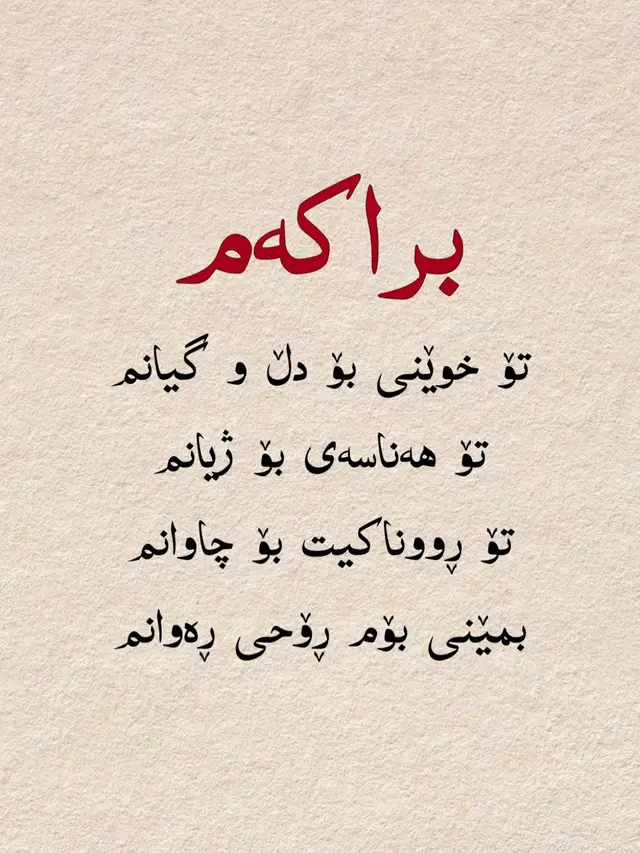 براکەم
تۆ خوێنی بۆ دڵ و گیانم
تۆ هەناسەی بۆ ژیانم
تۆ ڕووناکیت بۆ چاوانم
بمێنی بۆم ڕۆحی ڕەوانم